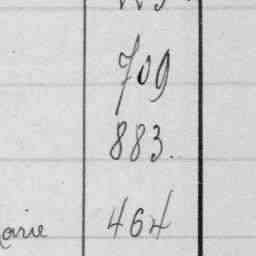 709
883.
arie 464